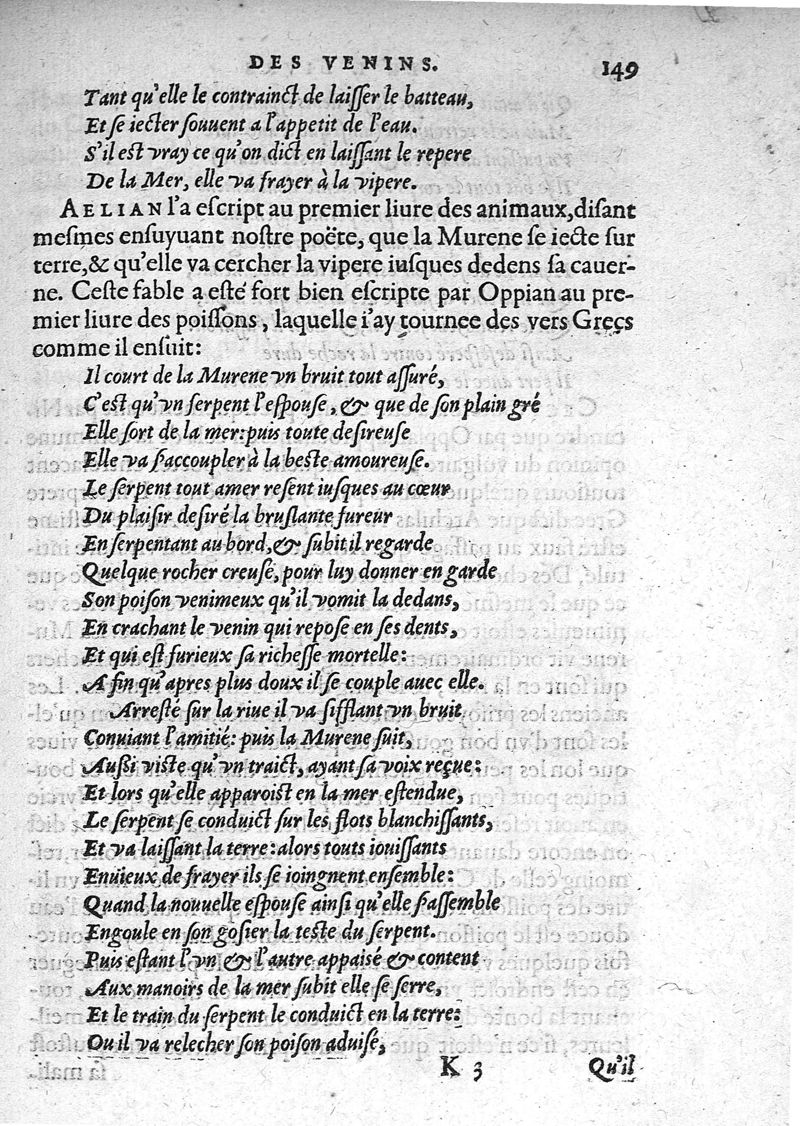 DES VENINS. 149
Tant qu'elle le contrainct de laiſſer le batteau,
Et ſe iecter ſouuent a l'appetit de l'eau.
S'il est vray ce qu'on dict en laiſſant le repere
De la Mer, elle va frayer à la vipere.
AELIAN l'a eſcript au premier liure des animaux, diſant
meſmes enſuyuant noſtre poëte, que la Murene ſe iecte ſur
terre, & qu'elle va cercher la vipere iuſques dedens ſa cauer-
ne. Ceſte fable a eſté fort bien eſcripte par Oppian au pre-
mier liure des poiſſons, laquelle i'ay tournee des vers Grecs
comme il enſuit:
Il court de la Murene vn bruit tout aſſuré,
C'est qu'vn ſerpent l'eſpouſe, & que de ſon plain gré
Elle ſort de la mer: puis toute deſireuſe
Elle va s'accoupler à la beſte amoureuſe.
Le ſerpent tout amer reſent iuſques au cœur
Du plaiſir deſiré la bruſlante fureur
En ſerpentant au bord, & ſubit il regarde
Quelque rocher creuſé, pour luy donner en garde
Son poiſon venimeux qu'il vomit la dedans,
En crachant le venin qui repoſe en ſes dents,
Et qui est furieux ſa richeſſe mortelle:
A fin qu'apres plus doux il ſe couple auec elle.
Arreſté ſur la riue il va ſifflant vn bruit
Conuiant l'amitié: puis la Murene ſuit,
Außi viſte qu'vn traict, ayant ſa voix reçue:
Et lors qu'elle apparoiſt en la mer eſtendue,
Le ſerpent ſe conduict ſur les flots blanchiſſants,
Et va laiſſant la terre: alors touts iouiſſants
Enuieux de frayer ils ſe ioingnent enſemble:
Quand la nouuelle eſpouſe ainſi qu'elle s'aſſemble
Engoule en ſon goſier la teſte du ſerpent.
Puis eſtant l'vn & l'autre appaiſé & content
Aux manoirs de la mer ſubit elle ſe ſerre,
Et le train du ſerpent le conduict en la terre:
Ou il va relecher ſon poiſon aduiſé,
K 3 Qu'il